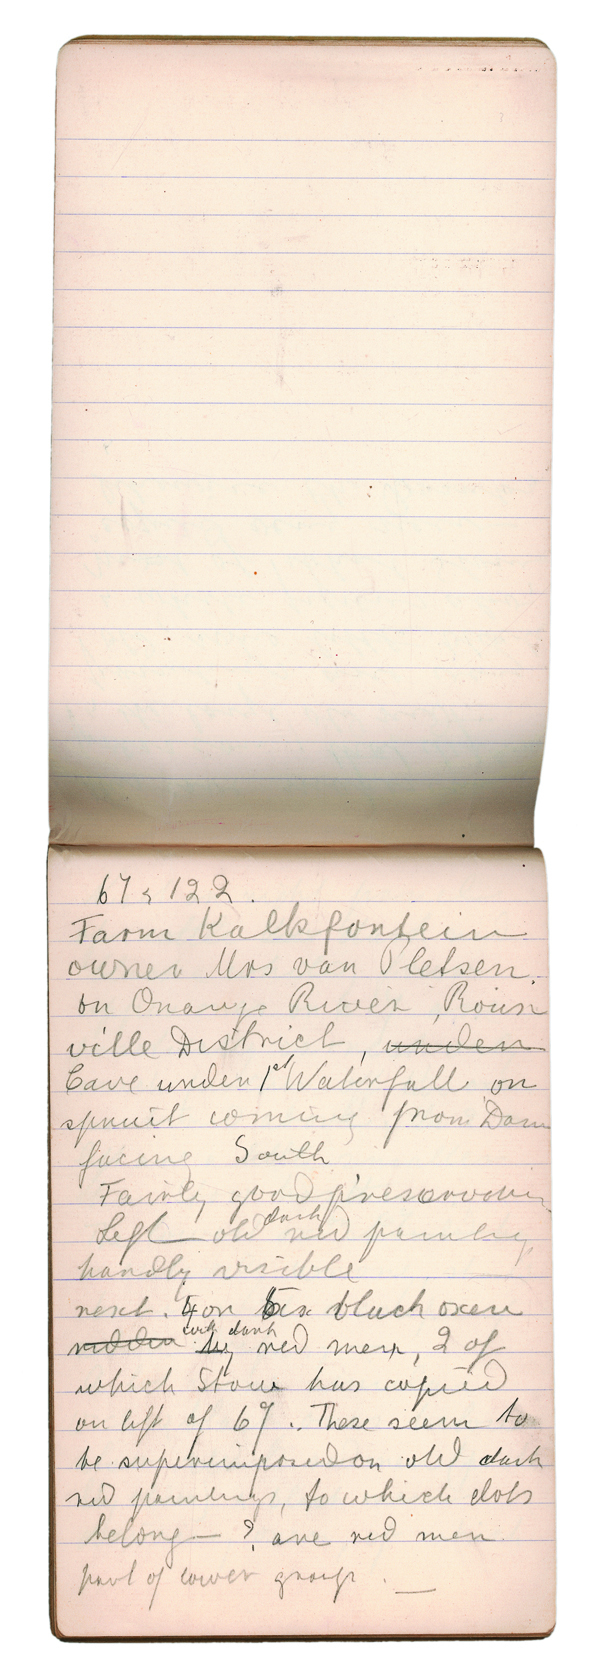 67 & 122.
Farm Kalkfontein
owner Mrs van Pletsen.
on Orange River, Roux
ville District, under
Cave under 1st Waterfall on
spruit coming from Dam
facing South
Fairly good preservation
Left old dark red painting
hardly visible
next. 4 or six black oxen
ridden by with dark red men, 2 of
which Stow has copied
on left of 67. These seem to
be superimposed on old dark
red paintings, to which dots
belong — ? are red men
part of lower group. —